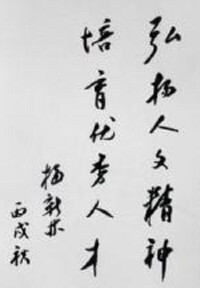 弘扬人文精神
培育优秀人才
丙戌秋